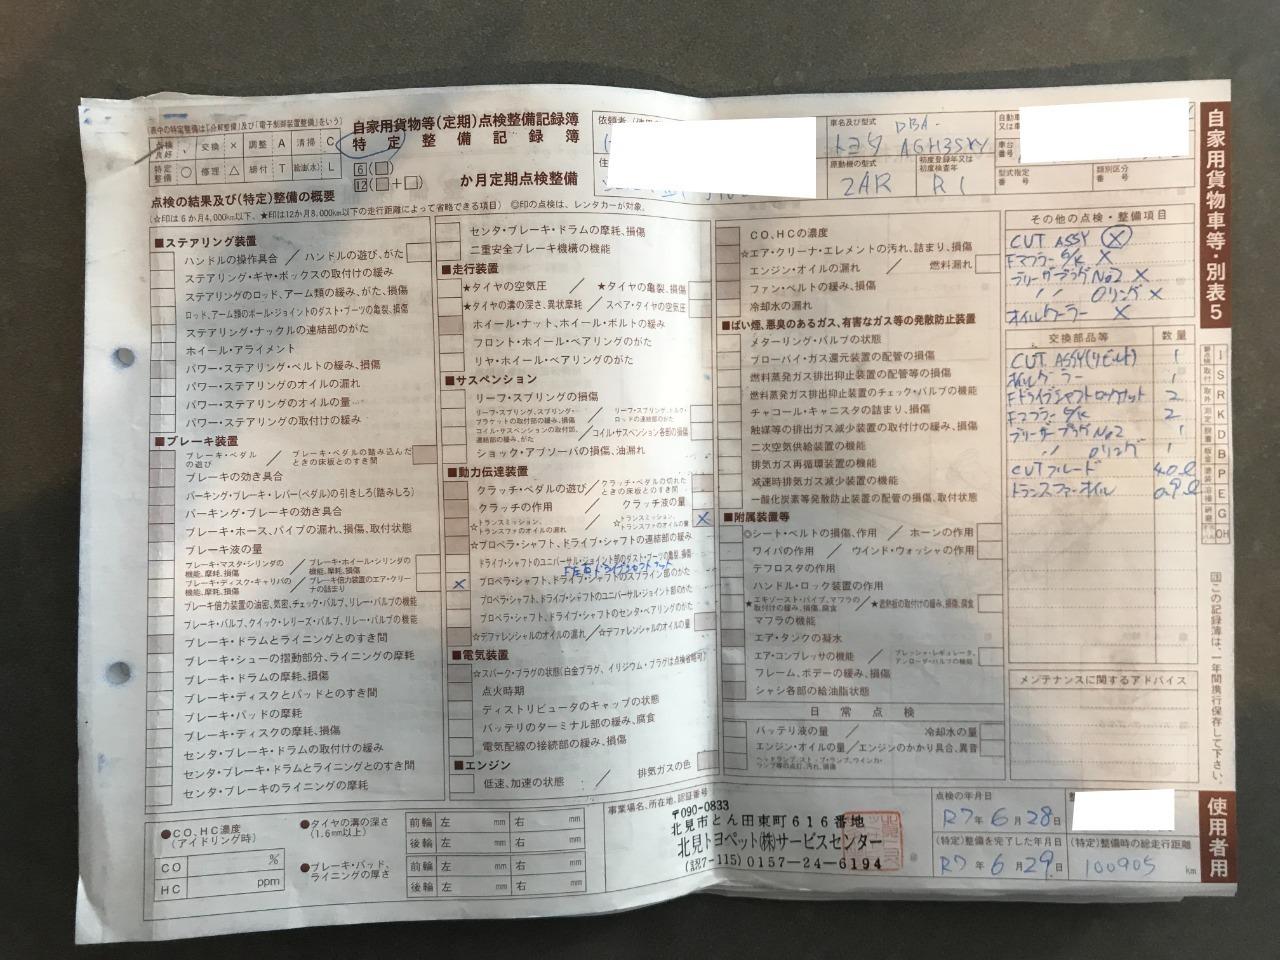 (表中の特定整備は「分解整備」及び「電子制御装置整備」をいう)
点検良好 レ 交換 × 調整 A 清掃 C
特定整備 ○ 修理 △ 締付 T 給油(水) L
自家用貨物等(定期)点検整備記録簿
特定整備記録簿
6(□)
12(□+□) か月定期点検整備
点検の結果及び(特定)整備の概要
(☆印は6か月4,000km以下、★印は12か月8,000km以下の走行距離によって省略できる項目) ◎印の点検は、レンタカーが対象。
車名及び型式
トヨタ DBA-
AGH35W
原動機の型式
2AR
初度登録年又は初度検査年
R1
型式指定番号
類別区分番号
自家用貨物車等・別表5
■ステアリング装置
ハンドルの操作具合 / ハンドルの遊び、がた
ステアリング・ギヤ・ボックスの取付けの緩み
ステアリングのロッド、アーム類の緩み、がた、損傷
ロッド、アーム類のボール・ジョイントのダスト・ブーツの亀裂、損傷
ステアリング・ナックルの連結部のがた
ホイール・アライメント
パワー・ステアリング・ベルトの緩み、損傷
パワー・ステアリングのオイルの漏れ
パワー・ステアリングのオイルの量
パワー・ステアリングの取付けの緩み
■ブレーキ装置
ブレーキ・ペダルの遊び / ブレーキ・ペダルの踏み込んだときの床板とのすき間
ブレーキの効き具合
パーキング・ブレーキ・レバー(ペダル)の引きしろ(踏みしろ)
パーキング・ブレーキの効き具合
ブレーキ・ホース、パイプの漏れ、損傷、取付状態
ブレーキ液の量
ブレーキ・マスタ・シリンダの機能、摩耗、損傷 / ブレーキ・ホイール・シリンダの機能、摩耗、損傷
ブレーキ・ディスク・キャリパの機能、摩耗、損傷 / ブレーキ倍力装置のエア・クリーナの詰まり
ブレーキ倍力装置の油密、気密、チェック・バルブ、リレー・バルブの機能
ブレーキ・バルブ、クイック・レリーズ・バルブ、リレー・バルブの機能
ブレーキ・ドラムとライニングとのすき間
ブレーキ・シューの摺動部分、ライニングの摩耗
ブレーキ・ドラムの摩耗、損傷
ブレーキ・ディスクとパッドとのすき間
ブレーキ・パッドの摩耗
ブレーキ・ディスクの摩耗、損傷
センタ・ブレーキ・ドラムの取付けの緩み
センタ・ブレーキ・ドラムとライニングとのすき間
センタ・ブレーキのライニングの摩耗
センタ・ブレーキ・ドラムの摩耗、損傷
二重安全ブレーキ機構の機能
■走行装置
★タイヤの空気圧 / ★タイヤの亀裂、損傷
★タイヤの溝の深さ、異状摩耗 / スペア・タイヤの空気圧
ホイール・ナット、ホイール・ボルトの緩み
フロント・ホイール・ベアリングのがた
リヤ・ホイール・ベアリングのがた
■サスペンション
リーフ・スプリングの損傷
リーフ・スプリング、スプリング・ブラケットの取付部の緩み、損傷 / リーフ・スプリング、トルク・ロッドの連結部のがた
コイル・サスペンションの取付部、連結部の緩み、がた / コイル・サスペンション各部の損傷
ショック・アブソーバの損傷、油漏れ
■動力伝達装置
クラッチ・ペダルの遊び / クラッチ・ペダルの切れたときの床板とのすき間
クラッチの作用 / クラッチ液の量
☆トランスミッション、トランスファのオイルの漏れ / ☆トランスミッション、トランスファのオイルの量 ×
☆プロペラ・シャフト、ドライブ・シャフトの連結部の緩み
ドライブ・シャフトのユニバーサル・ジョイント部のダスト・ブーツの亀裂、損傷
× プロペラ・シャフト、ドライブ・シャフトのスプライン部のがた
プロペラ・シャフト、ドライブ・シャフトのユニバーサル・ジョイント部のがた
プロペラ・シャフト、ドライブ・シャフトのセンタ・ベアリングのがた
☆デファレンシャルのオイルの漏れ / ☆デファレンシャルのオイルの量
■電気装置
☆スパーク・プラグの状態(白金プラグ、イリジウム・プラグは点検省略可)
点火時期
ディストリビュータのキャップの状態
バッテリのターミナル部の緩み、腐食
電気配線の接続部の緩み、損傷
■エンジン
低速、加速の状態 / 排気ガスの色
CO、HCの濃度
☆エア・クリーナ・エレメントの汚れ、詰まり、損傷
エンジン・オイルの漏れ / 燃料漏れ
ファン・ベルトの緩み、損傷
冷却水の漏れ
■ばい煙、悪臭のあるガス、有害なガス等の発散防止装置
メターリング・バルブの状態
ブローバイ・ガス還元装置の配管の損傷
燃料蒸発ガス排出抑止装置の配管等の損傷
燃料蒸発ガス排出抑止装置のチェック・バルブの機能
チャコール・キャニスタの詰まり、損傷
触媒等の排出ガス減少装置の取付けの緩み、損傷
二次空気供給装置の機能
排気ガス再循環装置の機能
減速時排気ガス減少装置の機能
一酸化炭素等発散防止装置の配管の損傷、取付状態
■附属装置等
◎シート・ベルトの損傷、作用 / ホーンの作用
ワイパの作用 / ウインド・ウォッシャの作用
デフロスタの作用
ハンドル・ロック装置の作用
★エキゾースト・パイプ、マフラの取付けの緩み、損傷、腐食 / ★遮熱板の取付けの緩み、損傷、腐食
マフラの機能
エア・タンクの凝水
エア・コンプレッサの機能 / プレッシャ・レギュレータ、アンローダ・バルブの機能
フレーム、ボデーの緩み、損傷
シャシ各部の給油脂状態
日常点検
バッテリ液の量 / 冷却水の量
エンジン・オイルの量 / エンジンのかかり具合、異音
ヘッドランプ、ストップ・ランプ、ウインカ・ランプ等の点灯、汚れ、損傷
その他の点検・整備項目
CUT ASSY ⊗
Fマフラー G/K ×
ブリーザープラグNo2 ×
〃 Oリング ×
オイルクーラー ×
交換部品等 数量
CUT ASSY(リビルト) 1
オイルクーラー 1
Fドライブシャフトロケット 2
Fマフラー G/K 2
ブリーザープラグNo2 1
〃 Oリング 1
CUTフルード 4.0ℓ
トランスファーオイル 0.9ℓ
メンテナンスに関するアドバイス
I
S
R
K
D
B
P
E
G
OH
この記録簿は、一年間携行保存して下さい。
使用者用
●CO、HC濃度(アイドリング時)
CO %
HC ppm
●タイヤの溝の深さ(1.6mm以上)
前輪 左 mm 右 mm
後輪 左 mm 右 mm
●ブレーキ・パッド、ライニングの厚さ
前輪 左 mm 右 mm
後輪 左 mm 右 mm
事業場名、所在地、認証番号
〒090-0833
北見市とん田東町616番地
北見トヨペット(株)サービスセンター
(認7-115)0157-24-6194
点検の年月日
R7年6月28日
(特定)整備を完了した年月日
R7年6月29日
(特定)整備時の総走行距離
100905 km